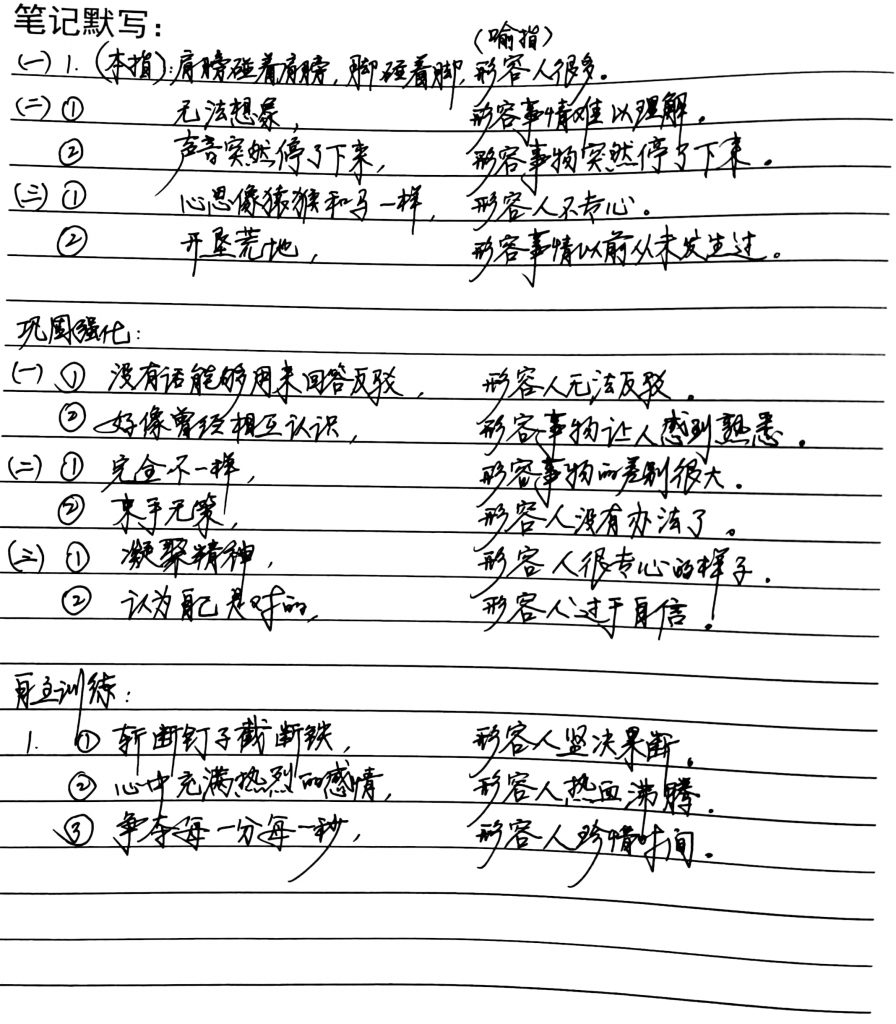 笔记默写：
（喻指）
(一) 1. (本指)：肩膀碰着肩膀，脚碰着脚，形容人很多。
(二) ① 无法想象，形容事情难以理解。
② 声音突然停了下来，形容事物突然停了下来。
(三) ① 心思像猿猴和马一样，形容人不专心。
② 开垦荒地，形容事情以前从未发生过。
巩固强化：
(一) ① 没有话能够用来回答反驳，形容人无法反驳。
② 好像曾经相互认识，形容事物让人感到熟悉。
(二) ① 完全不一样，形容事物的差别很大。
② 束手无策，形容人没有办法了。
(三) ① 凝聚精神，形容人很专心的样子.
② 认为自己是对的，形容人过于自信。
自主训练：
1. ① 斩断钉子截断铁，形容人坚决果断。
② 心中充满热烈的感情，形容人热血沸腾.
③ 争夺每一分每一秒，形容人珍惜时间。